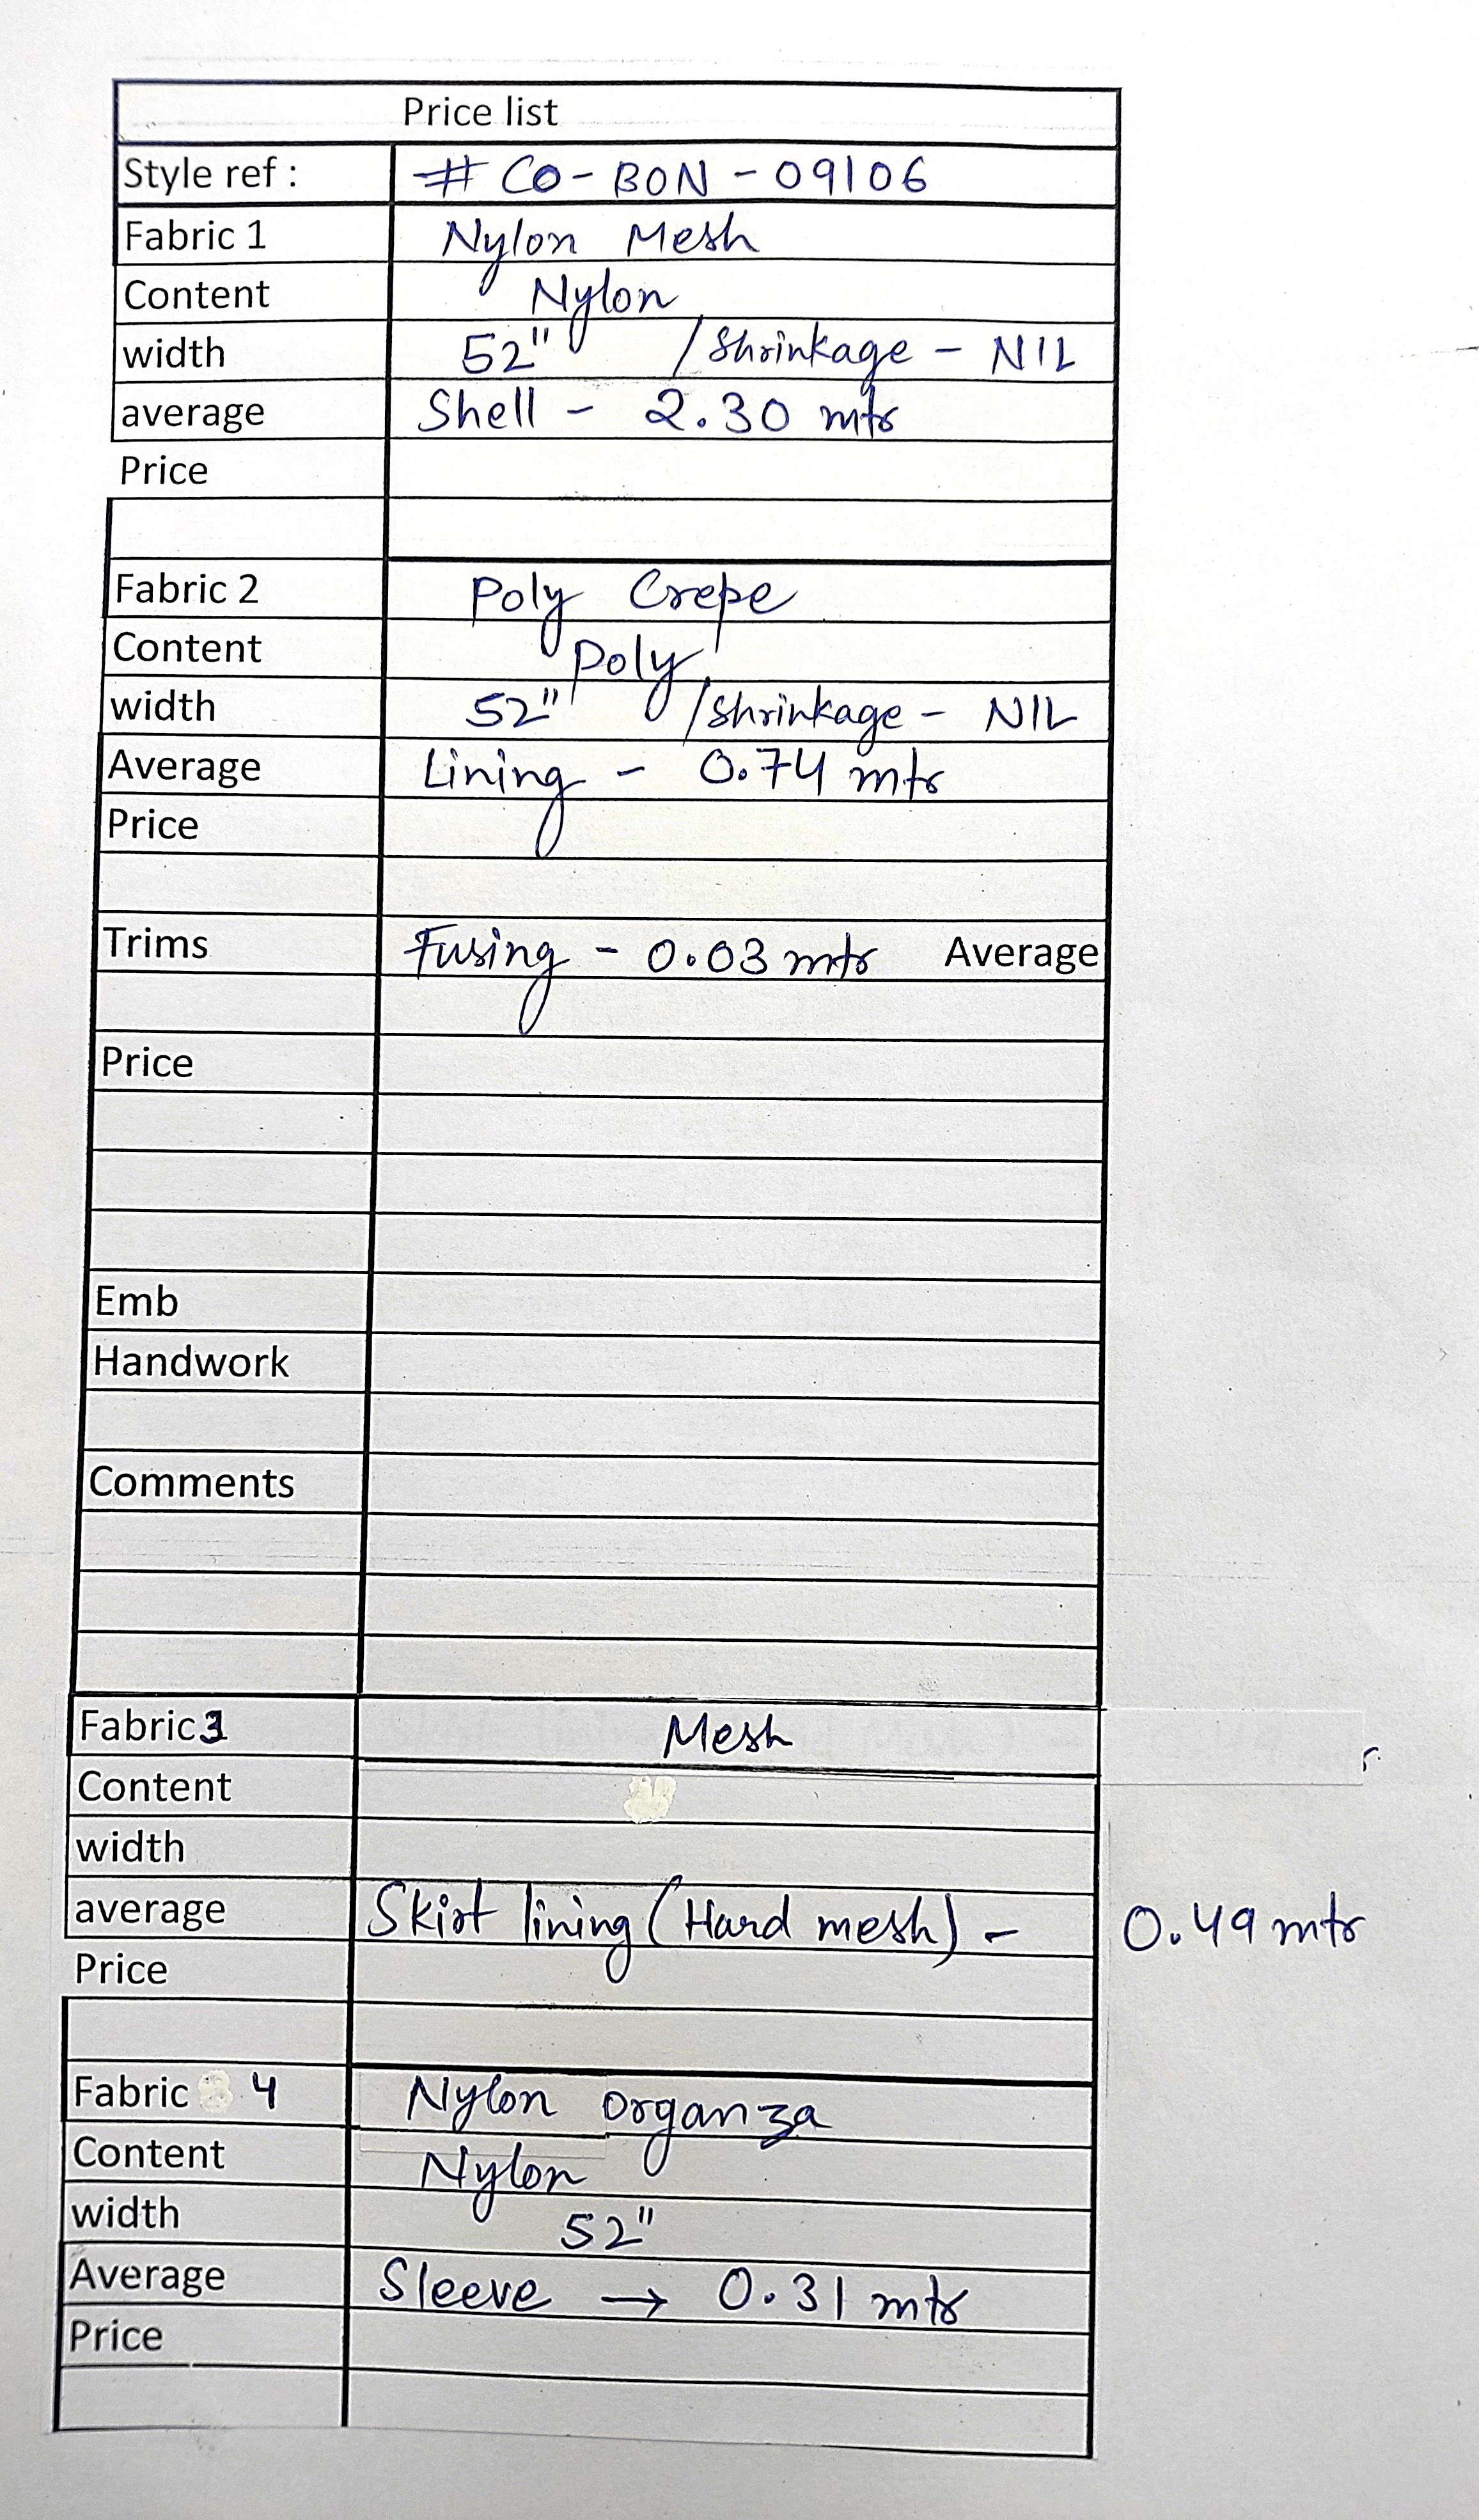 Price list
Style ref : # CO - BON - 09106
Fabric 1 Nylon Mesh
Content Nylon
width 52" / Shrinkage - NIL
average Shell - 2.30 mtr
Price
Fabric 2 Poly Crepe
Content Poly
width 52" / Shrinkage - NIL
Average Lining - 0.74 mtr
Price
Trims Fusing - 0.03 mtr Average
Price
Emb
Handwork
Comments
Fabric 3 Mesh
Content
width
average Skirt lining (Hard mesh) - 0.49 mtr
Price
Fabric 4 Nylon organza
Content Nylon
width 52"
Average Sleeve → 0.31 mtr
Price